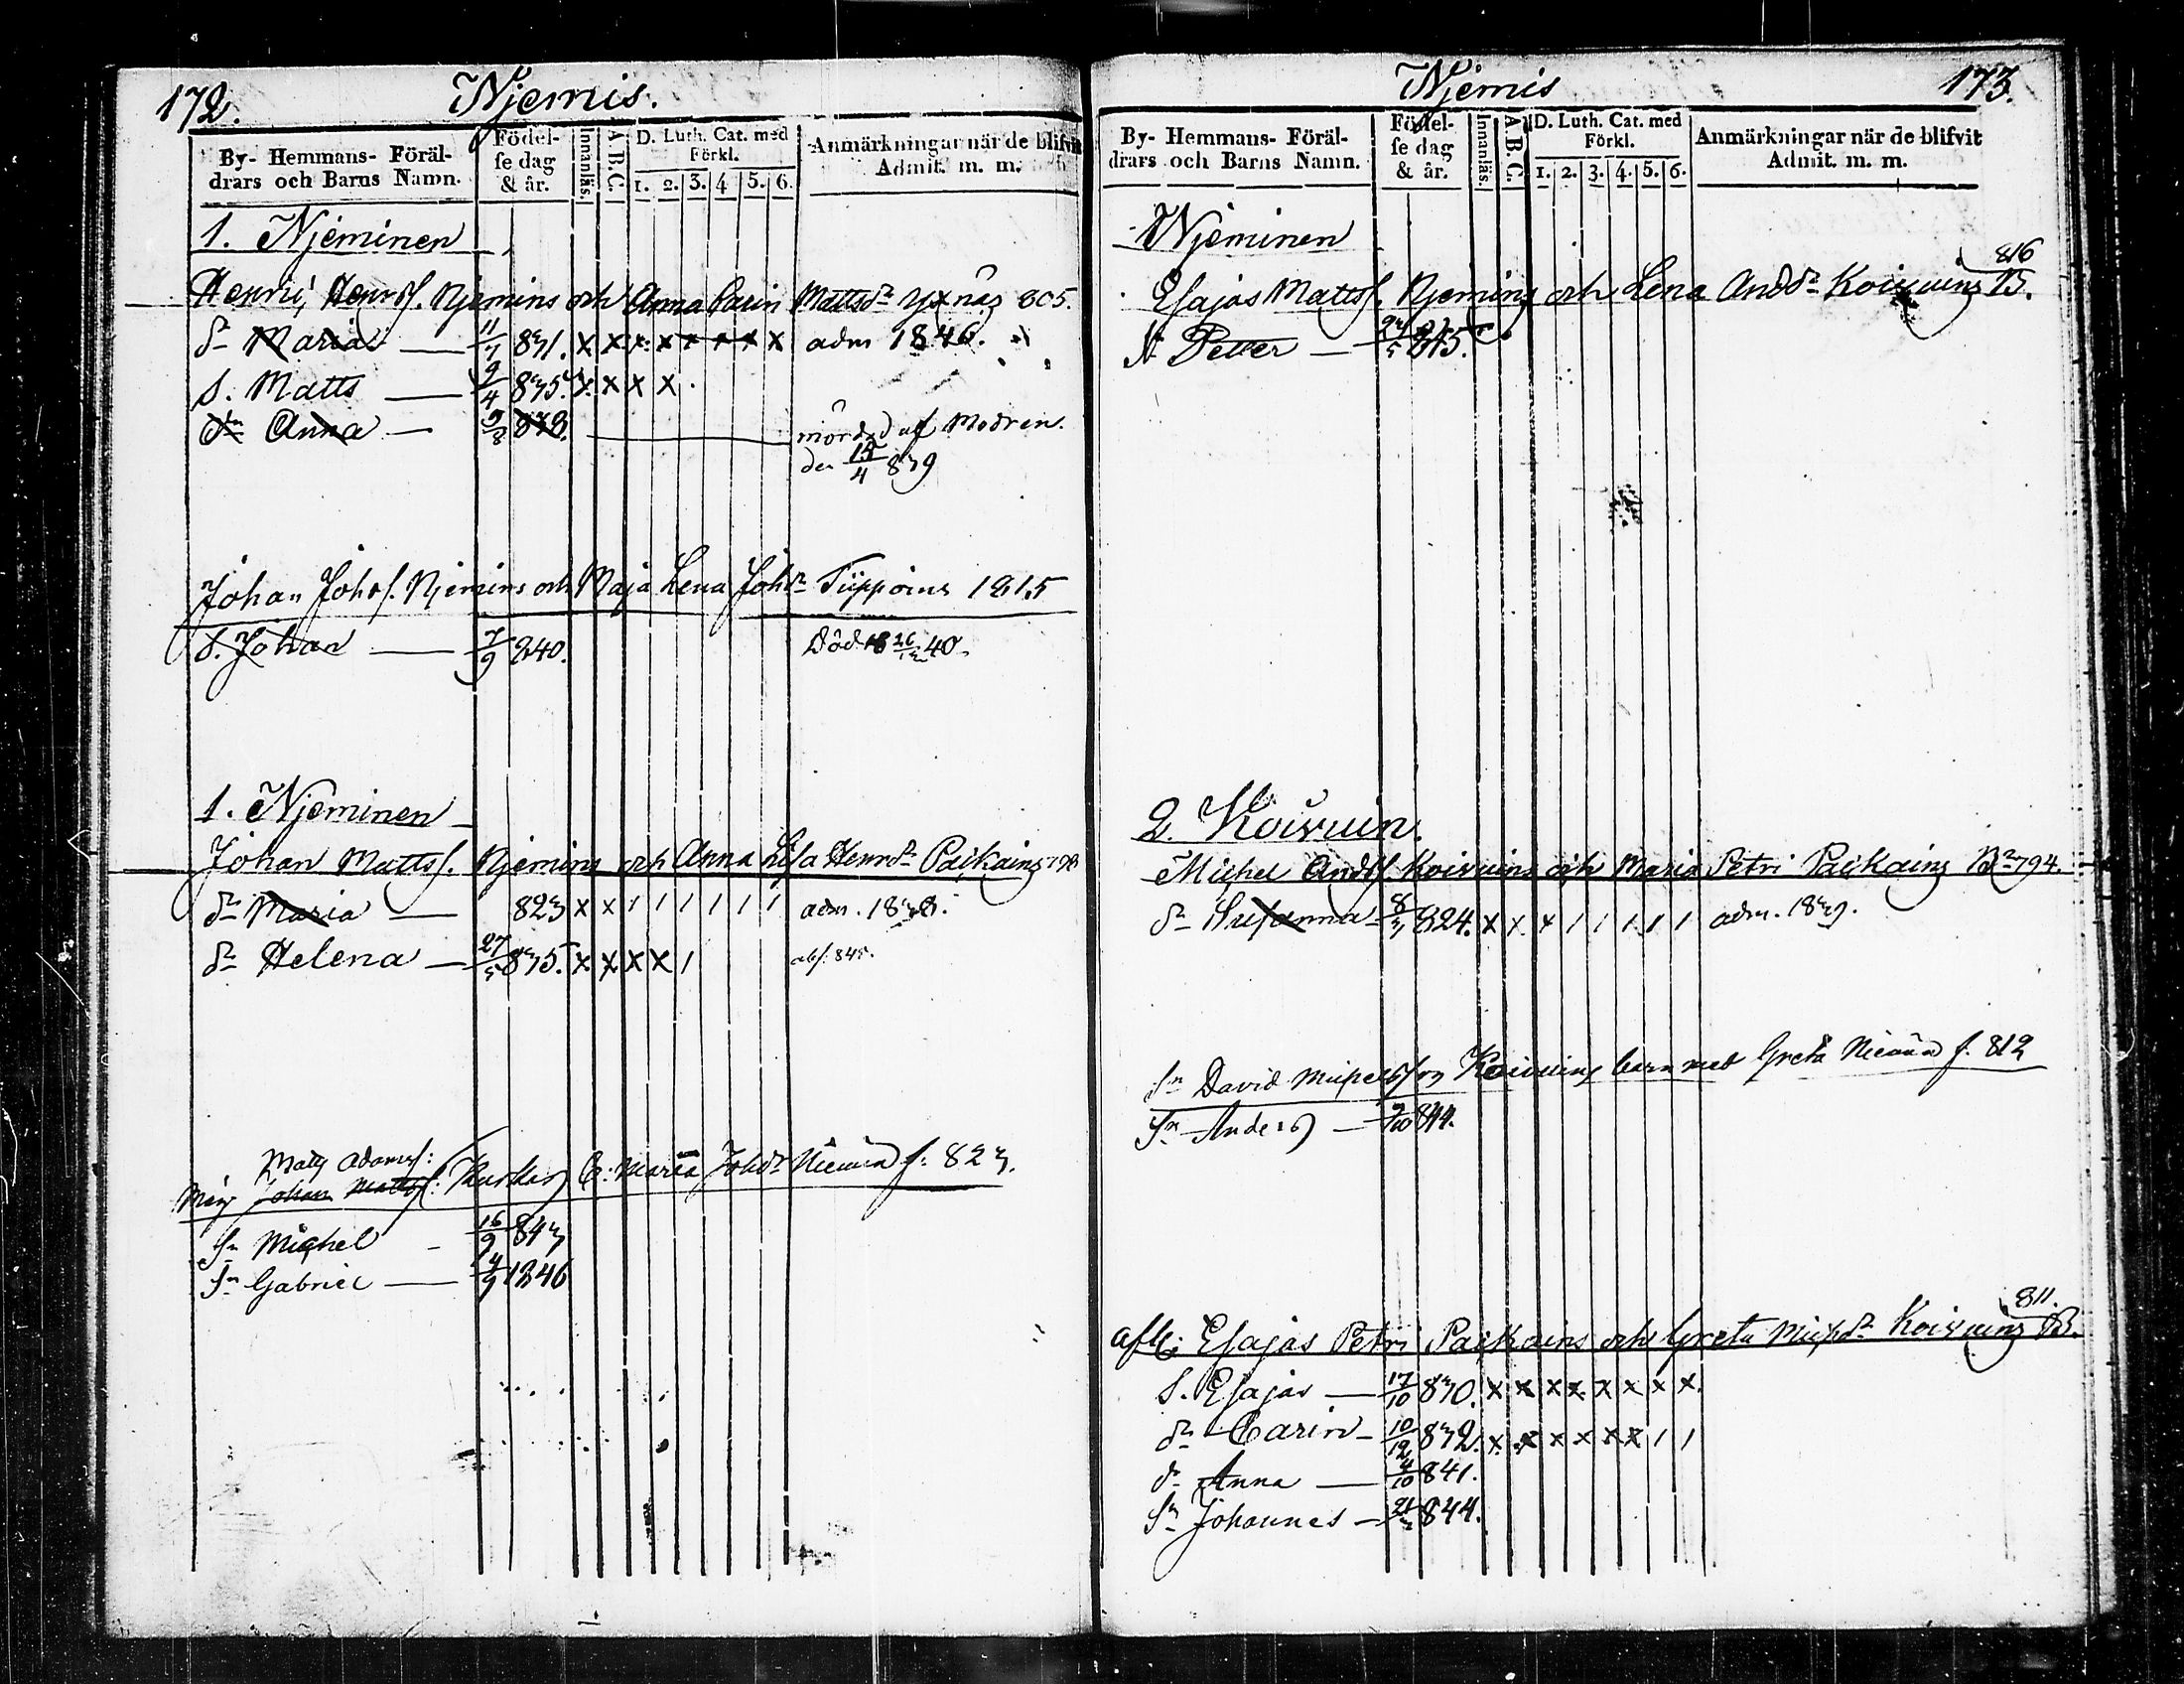 172.
Njemis.
By- Hemmans- Föräl-
drars och Barns Namn.
Födel-
se dag
& år.
Innanläs.
A.B.C.
D. Luth. Cat. med
Förkl.
1. 2. 3. 4 5. 6.
Anmärkningar när de blifvit
Admit. m. m.
1. Njeminen
Henric Henrs. Njemins och Anna Carin Mattsdr 805.
dr Maria — 11/1 831. x x x x x x x x adm 1846.
S. Matts — 9/4 835. x x x x
dr Anna — 9/8 838. mördad af Modren.
den 15/4 839
Johan Johs. Njemins och Maja Lena Johdr Tiippoins 1815
S. Johan — 7/9 840. Död 40
1. Njeminen
Johan Mattss. Njemins och Anna Lisa Henrdr Paikains
dr Maria — 823 x x 1 1 1 1 1 1 adm. 1838.
dr Helena — 27/5 835. x x x x 1 abs. 845.
Matts Adamss:
Johan Mattss: Kurkas C: Maria Johdr f. 823.
Sn Michel — 16/9 843
Sn Gabriel — 1846
173.
Njemis
By- Hemmans- Föräl-
drars och Barns Namn.
Födel-
se dag
& år.
Innanläs.
A.B.C.
D. Luth. Cat. med
Förkl.
1. 2. 3. 4. 5. 6.
Anmärkningar när de blifvit
Admit. m. m.
Njeminen
816
Esajas Mattss. Njemins och Lena Anddr Koivuins B.
Petter — 845.
2. Koivuin.
Michel Andss. Koivuins och Maria Petri Paikains Br 794.
dr Susanna 8/3 824. x x x 1 1 1 1 1 adm. 1839.
Sn David Koivuins barn med Greta f. 812
Sn Anders — 844.
811.
Esajas Petri Paikains och Greta Michdr Koivuins B.
S. Esajas — 17/10 830. x x x x x x x x
dr Carin — 10/12 832. x x x x x x 1 1
dr Anna — 4/10 841.
Sn Johannes — 844.